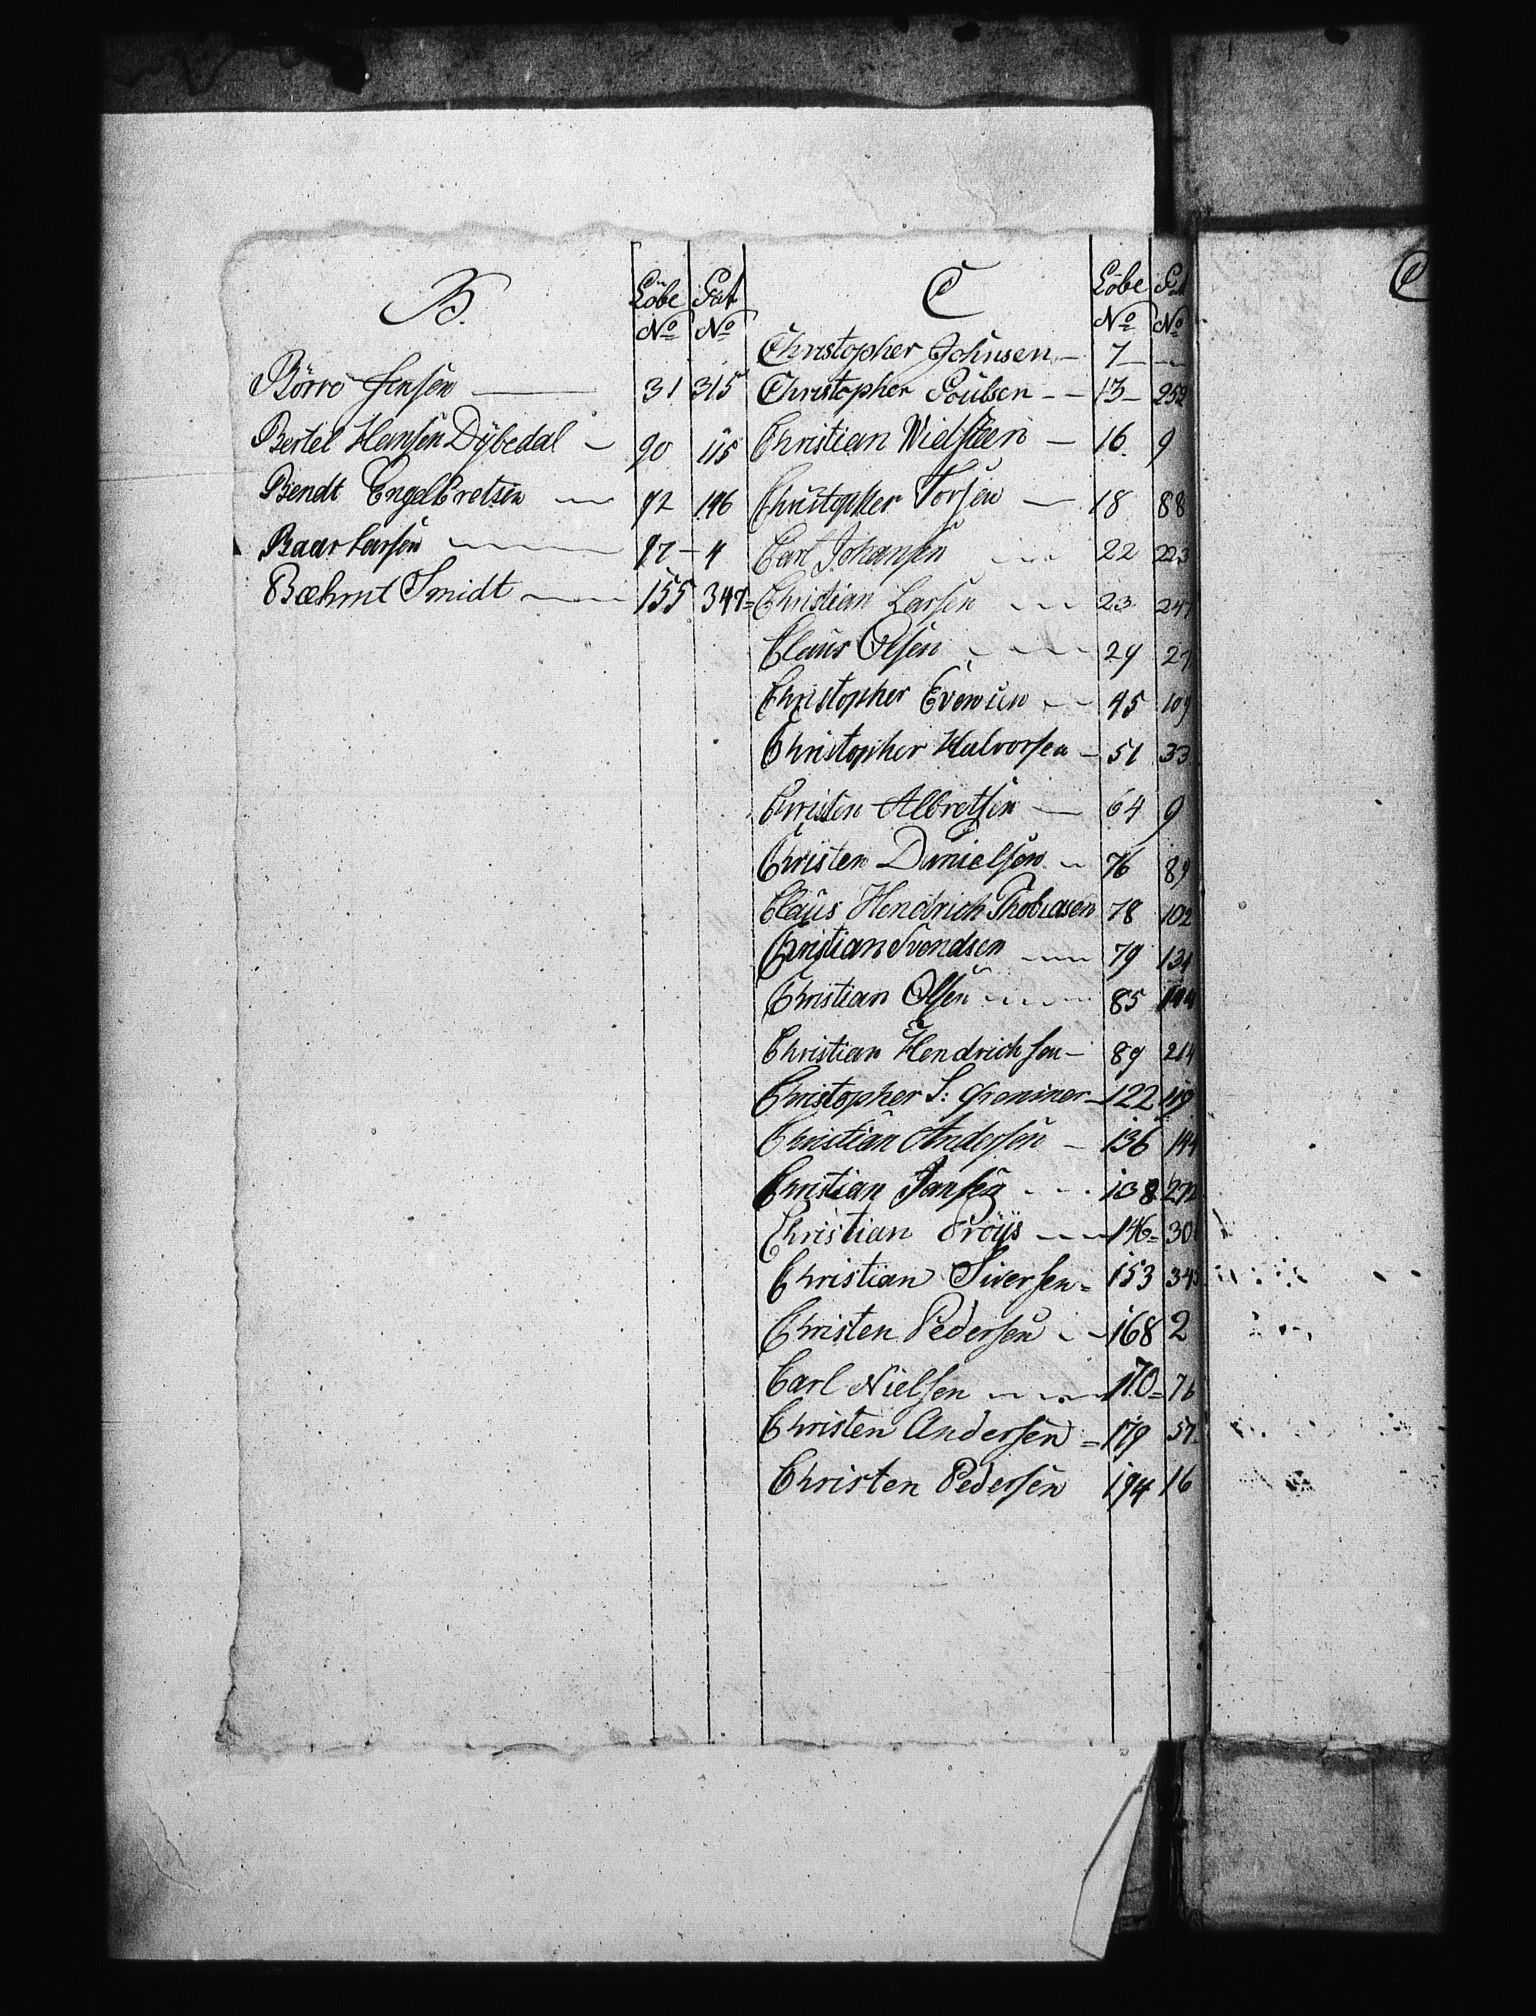 B.
Löbe Pat
No No
Börre Jensen 31 315
Bertel Hansen Dybedal 90 115
Bendt Engelbretsen 92 196
Baar Larsen 97 4
Bæhrnt Smidt 155 347=
C
Löbe Pat
No No
Christopher Johnsen 7
Christopher Poulsen 13 252
Christian Nielsteen 16. 9
Christopher Torsen 18 88
Carl Johansen 22 223
Christian Larsen 23 247
Claus Olsen 29 27
Christopher Evensen 45 109
Christopher Halvorsen 51 33
Christen Albretsen 64 9
Christen Danielsen 76 89
Claus Hendrich Thobiasen 78 102
Christian Svendsen 79 134
Christian Olsen 85
Christian Hendrichsen 89 214
Christopher S: 122 119
Christian Andersen 136 144
Christian Jansen 138 272
Christian Pröys 146= 30
Christian Siversen= 153 345
Christen Pedersen 168 2
Carl Nielsen 170= 76
Christen Andersen = 179 57
Christen Pedersen 194 16
C